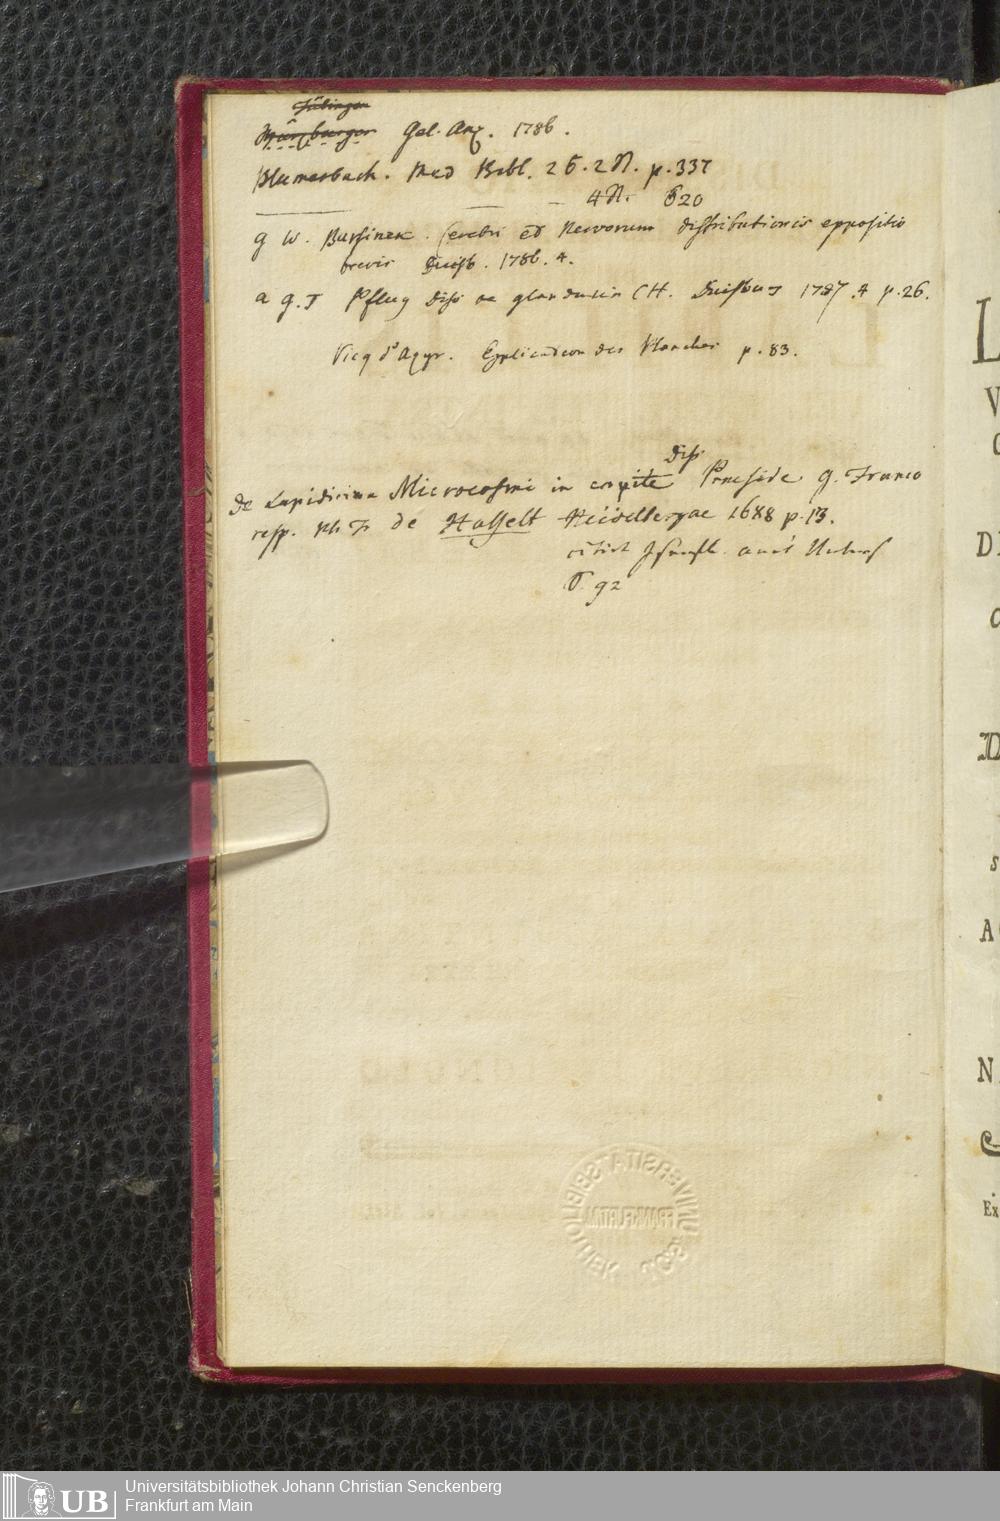 Tübinger
Würzburger Gel. Anz. 1786.
Blumenbach. Med Bibl. 2 B. 2 St. p. 337
4 St. S 20
G W. Cerebri et Nervorum distributionis expositio
brevis Duisb. 1786. 4.
a G. J Pflug Diss de glandulis CH. Duisburg 1787. 4 p. 26.
Vicq d'Azyr. Explication des Planches p. 83.
Diss
De Lapidicina Microcosmi in capite Praeside G. Franco
resp. de Hasselt Heidelbergae 1688 p. 13.
citirt
S. 92
L
V
D
A
N
Ex
UNIVERSITÄTSBIBLIOTHEK
FRANKFURT A.M.
UB
Universitätsbibliothek Johann Christian Senckenberg
Frankfurt am Main